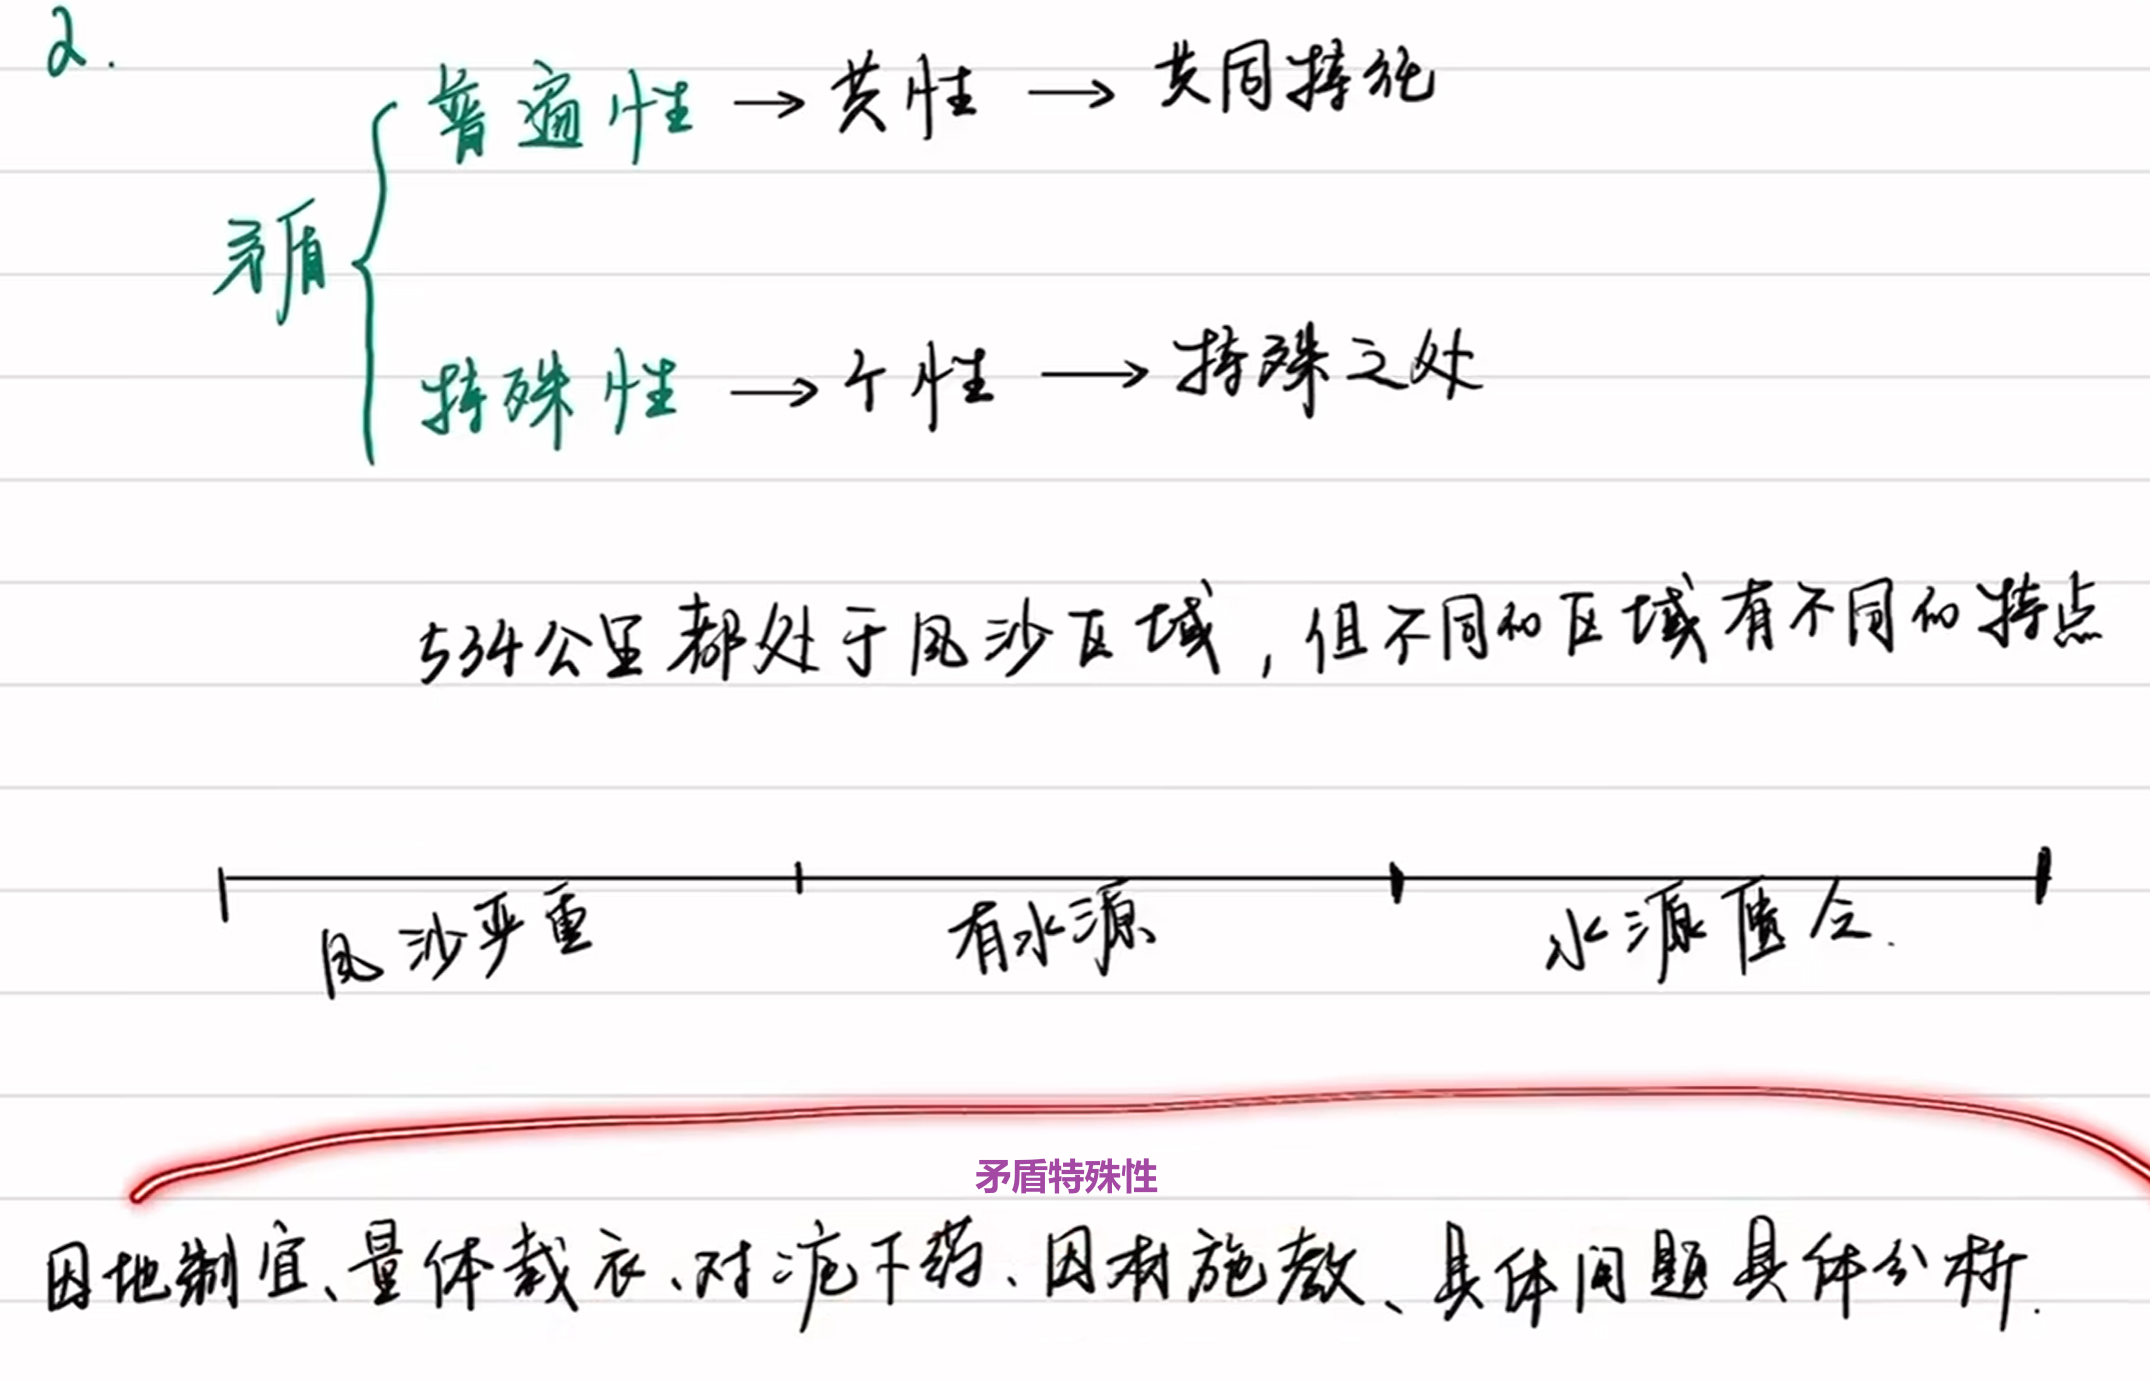 2.
普遍性 → 共性 → 共同特征
矛盾
特殊性 → 个性 → 特殊之处
534公里都处于风沙区域，但不同的区域有不同的特点
风沙严重 有水源 水源匮乏.
矛盾特殊性
因地制宜、量体裁衣、对症下药、因材施教、具体问题具体分析.